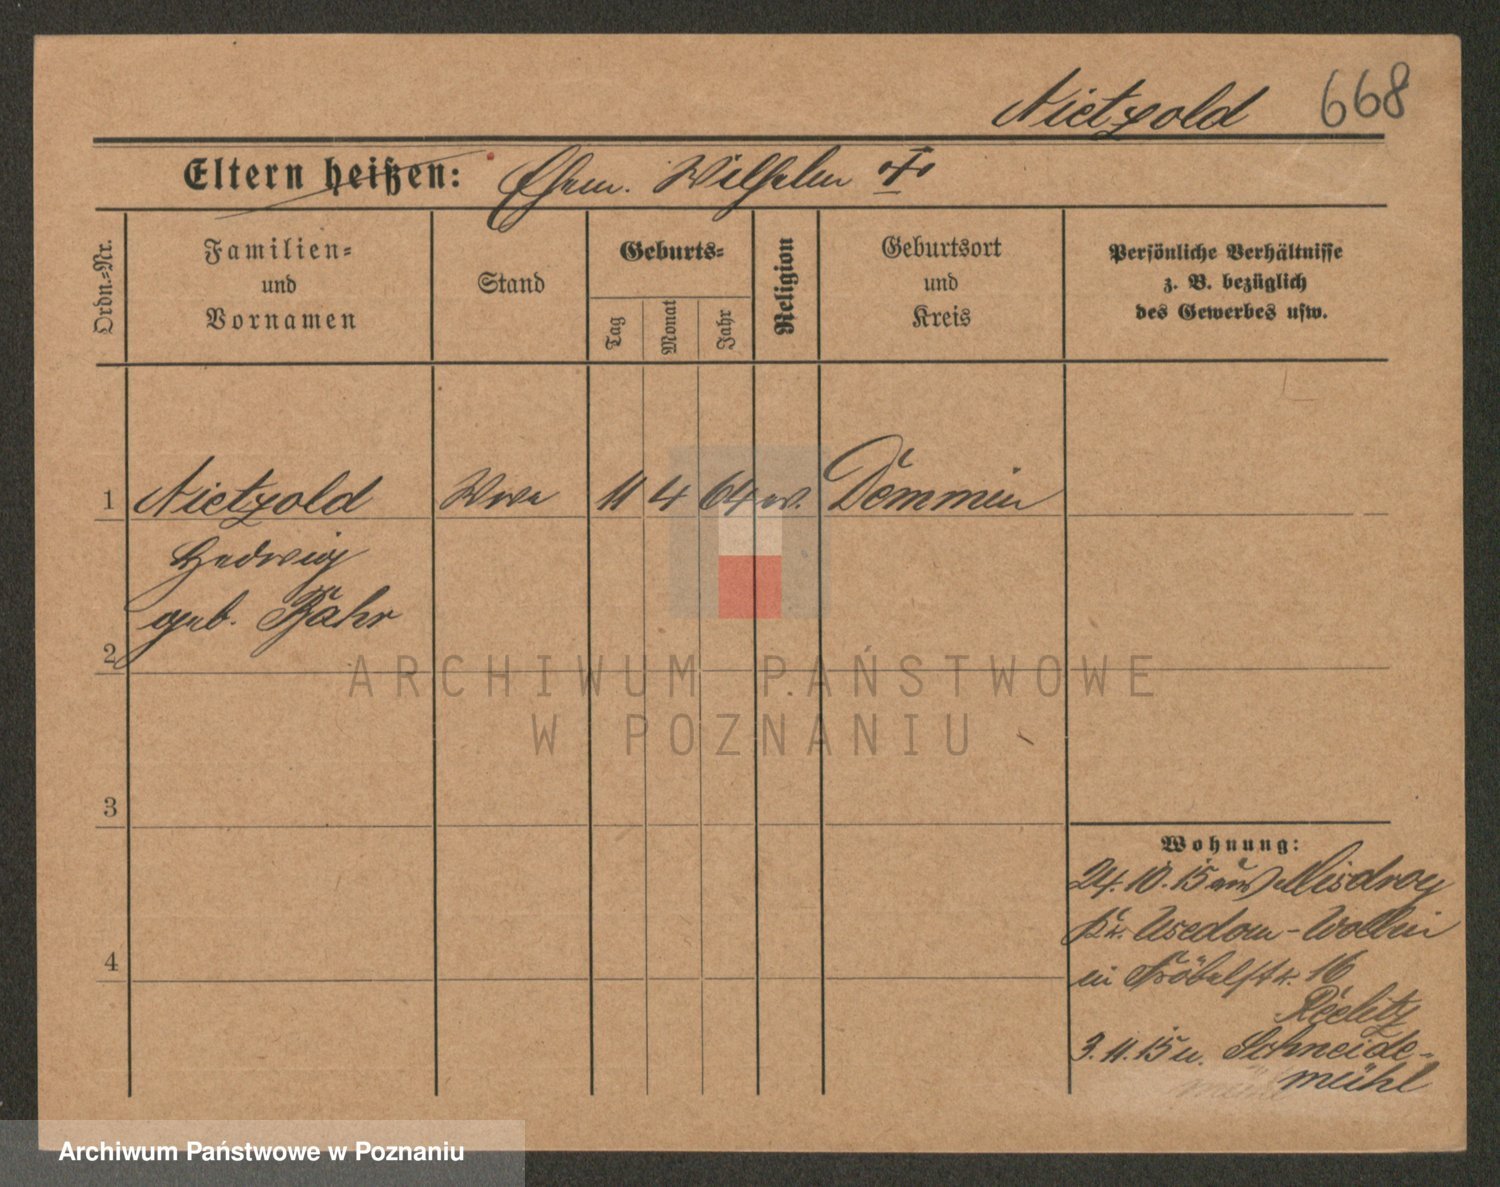 Nietzold 668
Eltern heißen: Ehem. Wilhelm
Ordn.-Nr.
Familien-
und
Vornamen
Stand
Geburts-
Tag
Monat
Jahr
Religion
Geburtsort
und
Kreis
Persönliche Verhältnisse
z. B. bezüglich
des Gewerbes usw.
1 Nietzold Wwe 11 4 64 ev. Demmin
Hedwig
geb. Bahr
2
ARCHIWUM PAŃSTWOWE
W POZNANIU
3
Wohnung:
24. 10. 15 aus Misdroy
Kr. Usedom-Wollin
4
in Fröbelstr. 16
3. 11. 15 n. Schneide-
mühl
Archiwum Państwowe w Poznaniu